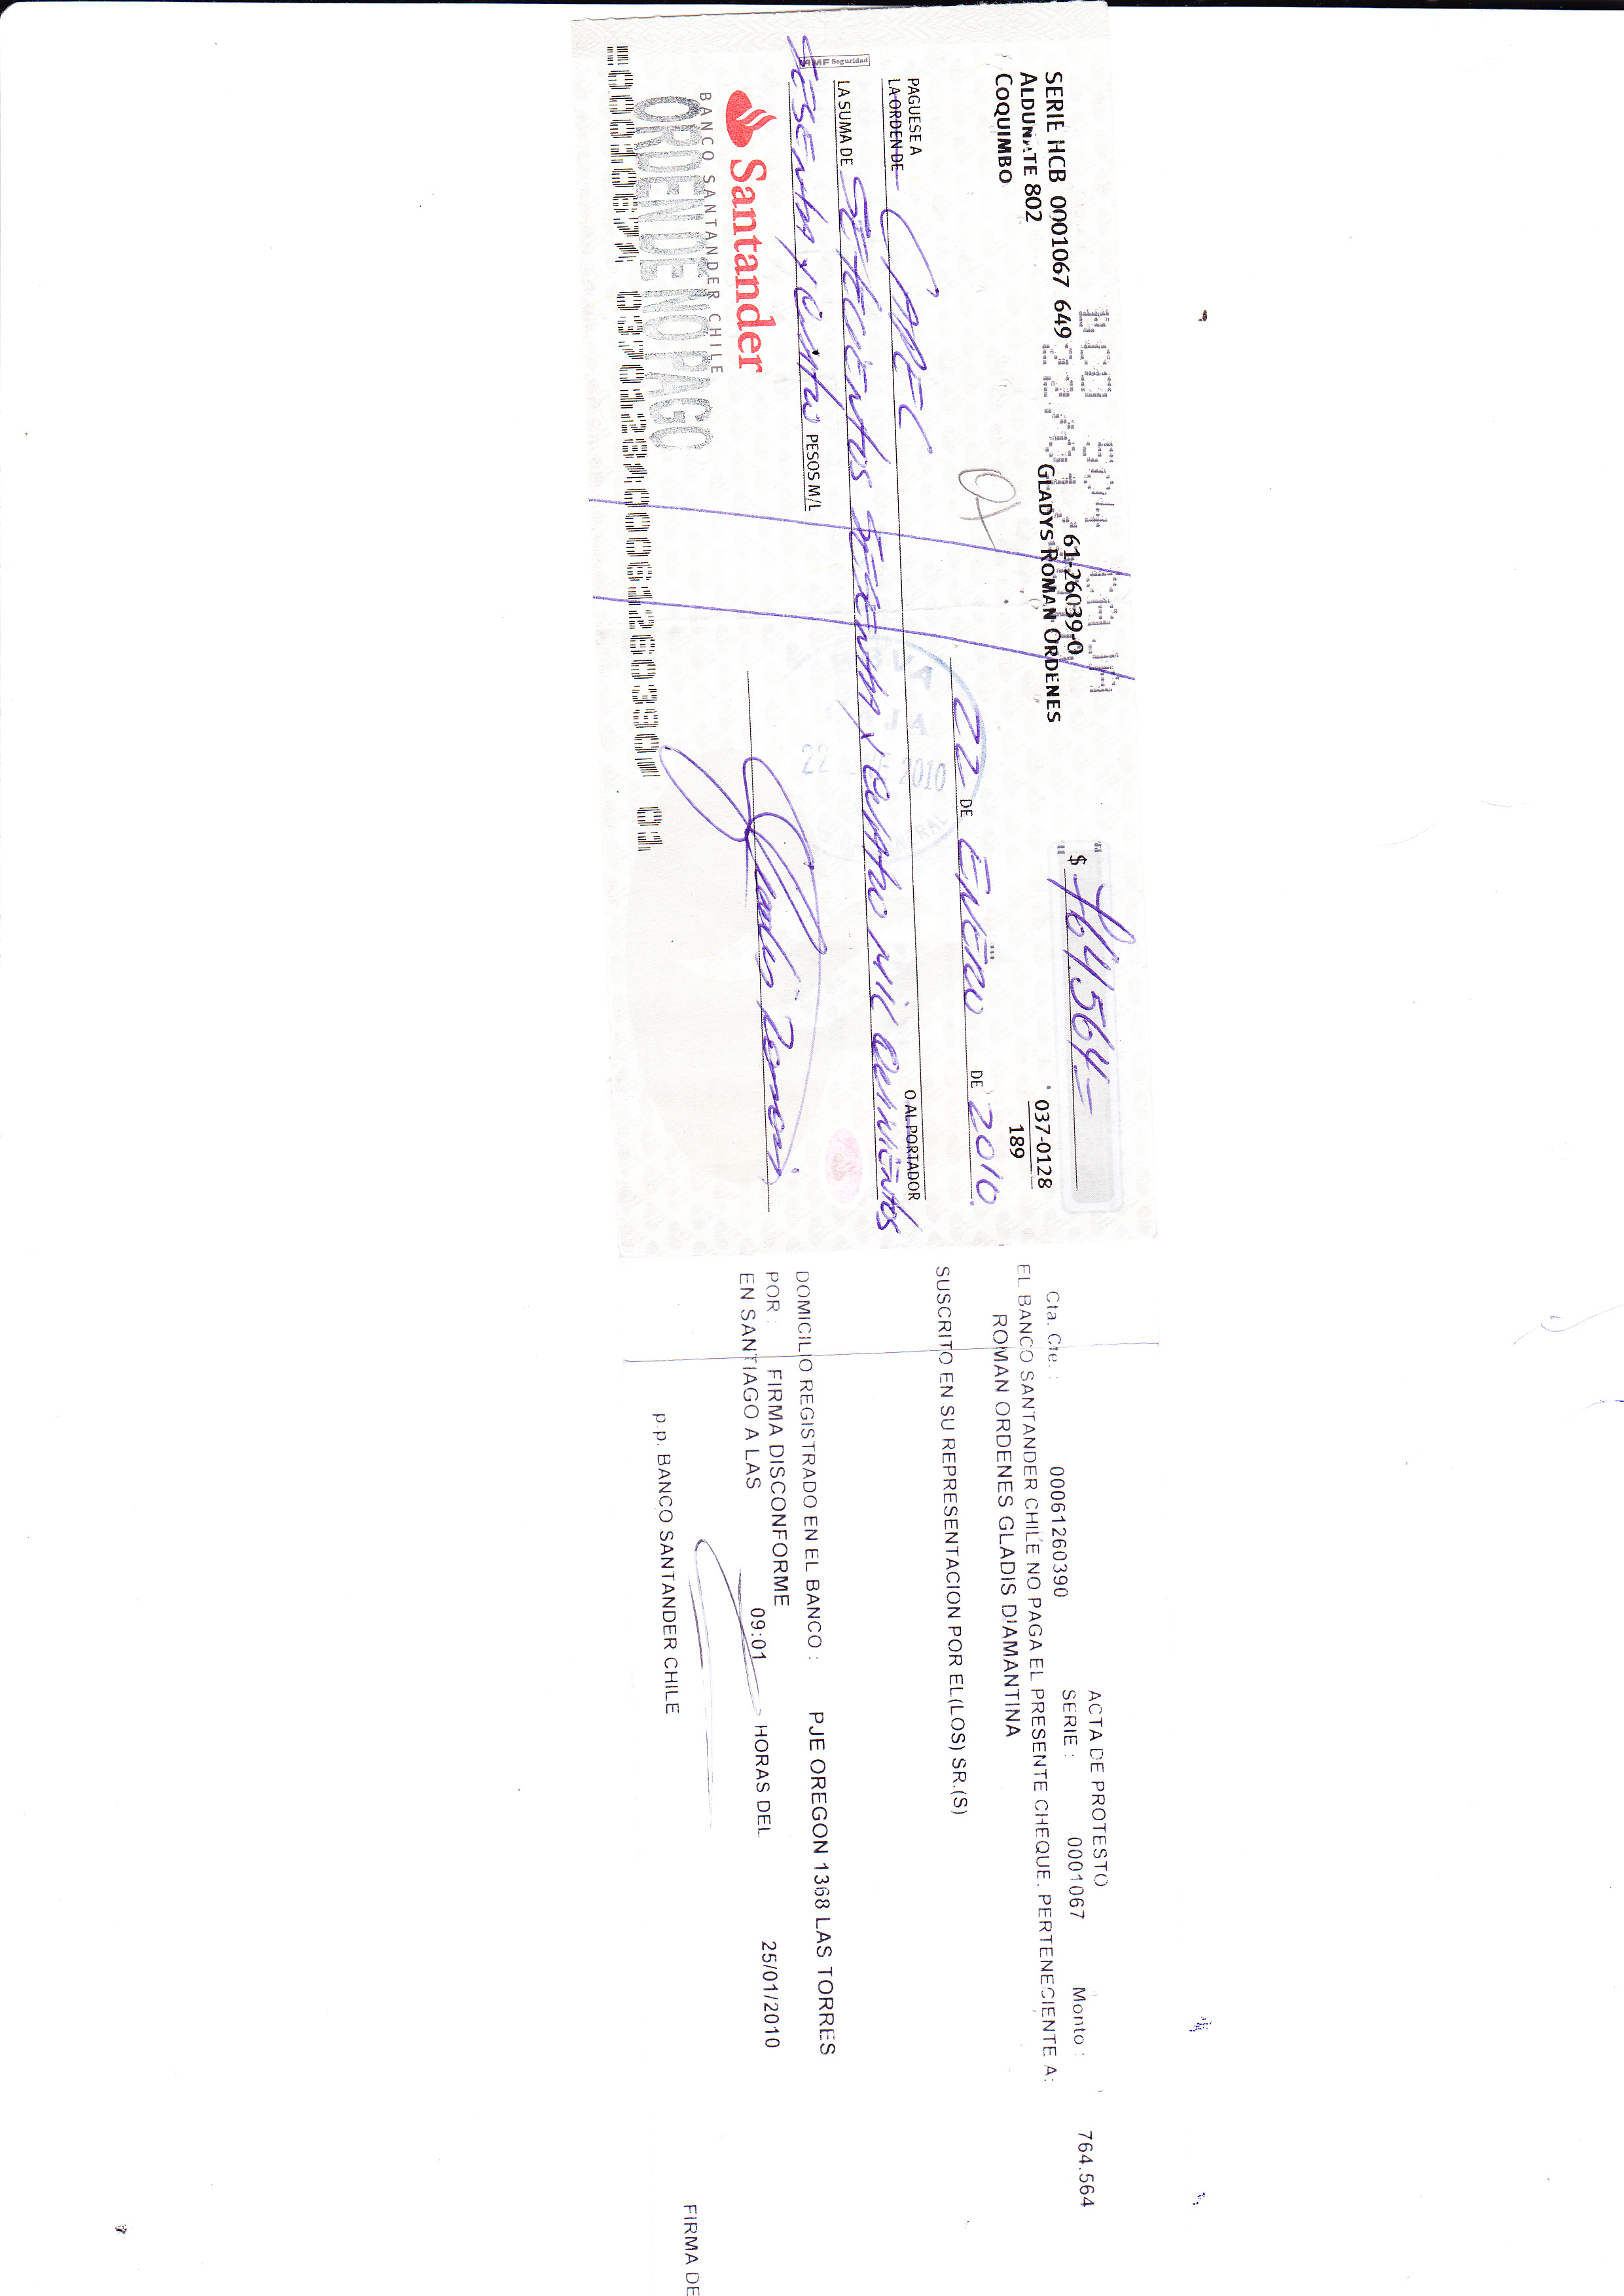 SERIE HCB 0001067 649
61-26039-0
ALDUNATE 802
GLADYS ROMAN ORDENES
COQUIMBO
$ 764564
037-0128
189
22 DE ENERO DE 2010
PAGUESE A
LA ORDEN DE CAREC
O AL PORTADOR
LA SUMA DE Setecientos Sesenta y cuatro mil quinientos
Sesenta y cuatro PESOS M/L
AMF Seguridad
22 2010
Santander
BANCO SANTANDER CHILE
ORDEN DE NO PAGO
ACTA DE PROTESTO
Cta. Cte. : 00061260390 SERIE : 0001067 Monto : 764.564
EL BANCO SANTANDER CHILE NO PAGA EL PRESENTE CHEQUE. PERTENECIENTE A:
ROMAN ORDENES GLADIS DIAMANTINA
SUSCRITO EN SU REPRESENTACION POR EL(LOS) SR.(S)
DOMICILIO REGISTRADO EN EL BANCO : PJE OREGON 1368 LAS TORRES
POR : FIRMA DISCONFORME
EN SANTIAGO A LAS 09:01 HORAS DEL 25/01/2010
p.p. BANCO SANTANDER CHILE
FIRMA DE